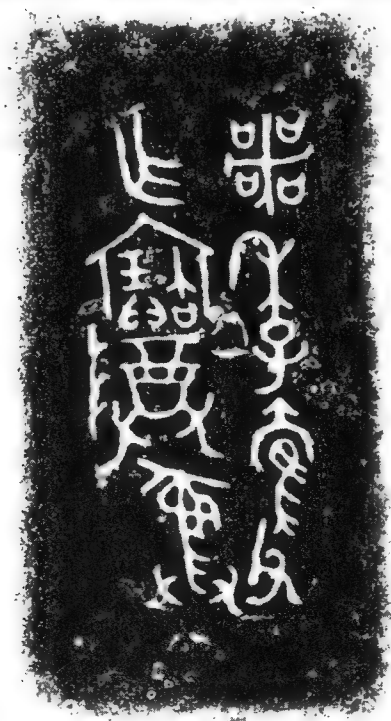 噩季奞父
乍寶尊彝